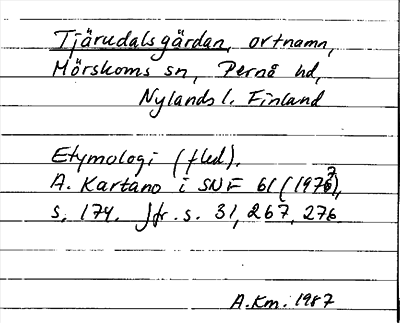 Tjärudalsgärdan, ortnamn,
Mörskoms sn, Pernå hd,
Nylands l. Finland
Etymologi (fled).
A. Kartano i SNF 61 (1977),
s. 174. Jfr. s. 31, 267, 276
A.Km. 1987